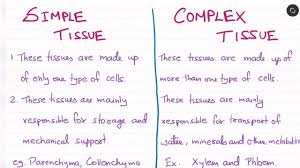 SIMPLE TISSUE
1 These tissues are made up
of only one type of cells.
2. These tissues are mainly
responsible for storage
and mechanical support.
eg. Parenchyma, Collenchyma
COMPLEX TISSUE
These tissues are made up of
more than one type of cell.
These tissues are mainly
responsible for transport of
water, minerals and other metabolites
Ex. Xylem and Phloem.